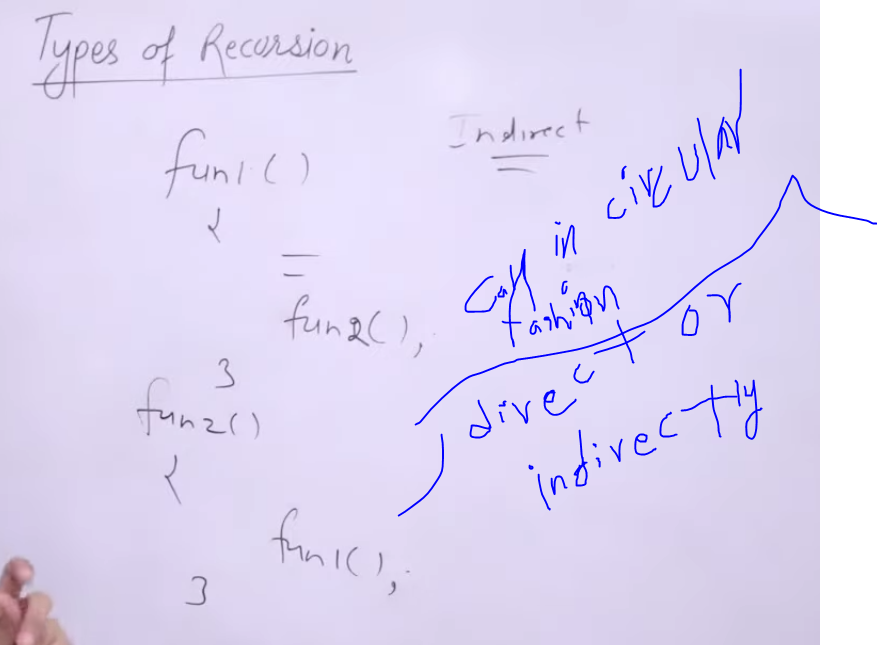 Types of Recursion
Indirect
fun1()
{
fun2();
}
fun2()
{
fun1();
}
call in circular
fashion
direct or
indirectly